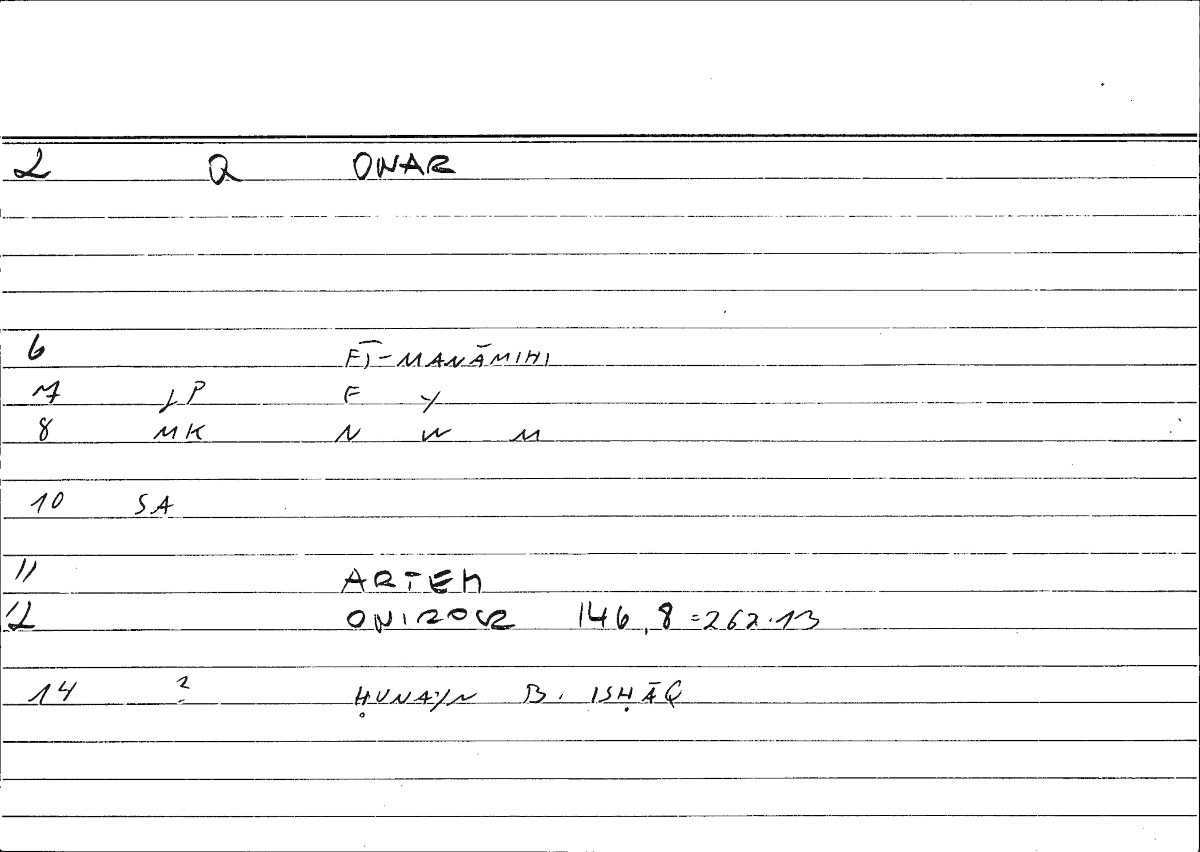 2 Q ONAR
6 FĪ-MANĀMIHI
7 JP F Y
8 MK N W M
10 SA
11 ARTEM
12 ONIROCR 146,8=262.13
14 ? ḤUNAYN B. ISḤĀQ